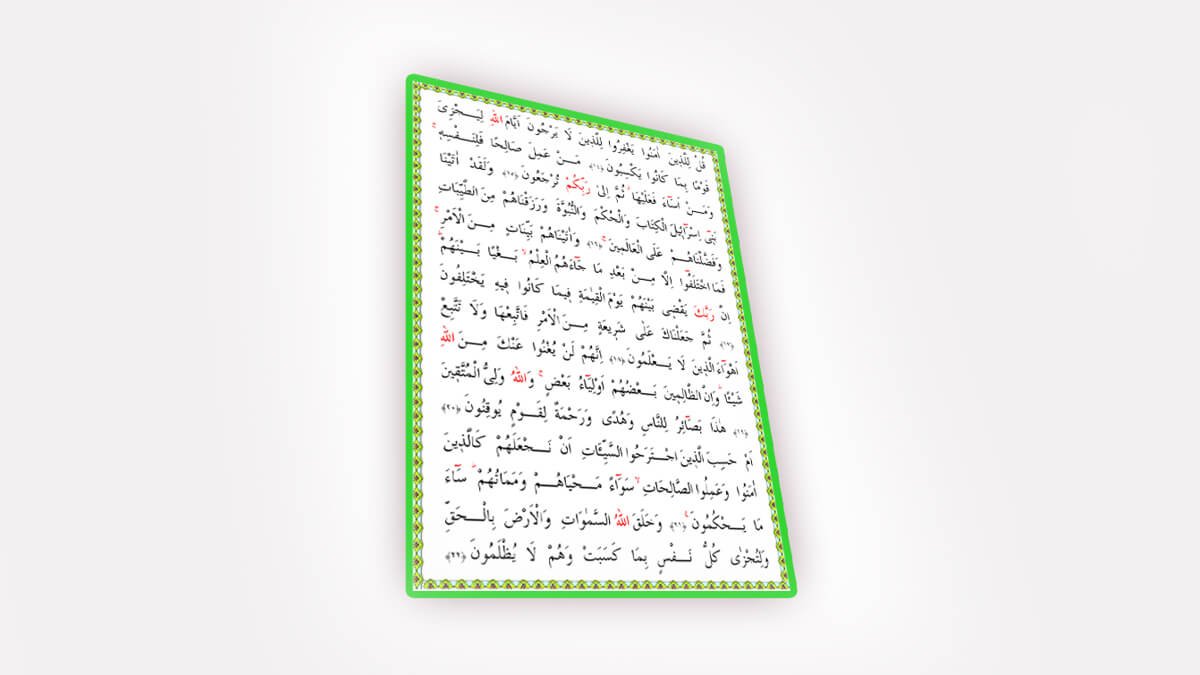 قُلْ لِلَّذِينَ اٰمَنُوا يَغْفِرُوا لِلَّذِينَ لَا يَرْجُونَ اَيَّامَ اللّٰهِ لِيَجْزِىَ
قَوْمًا بِمَا كَانُوا يَكْسِبُونَ ﴿١٤﴾ مَنْ عَمِلَ صَالِحًا فَلِنَفْسِهٖۚ
وَمَنْ اَسَٓاءَ فَعَلَيْهَاۘ ثُمَّ اِلٰى رَبِّكُمْ تُرْجَعُونَ ﴿١٥﴾ وَلَقَدْ اٰتَيْنَا
بَنٖٓى اِسْرَٓائٖلَ الْكِتَابَ وَالْحُكْمَ وَالنُّبُوَّةَ وَرَزَقْنَاهُمْ مِنَ الطَّيِّبَاتِ
وَفَضَّلْنَاهُمْ عَلَى الْعَالَمٖينَۚ ﴿١٦﴾ وَاٰتَيْنَاهُمْ بَيِّنَاتٍ مِنَ الْاَمْرِۚ
فَمَا اخْتَلَفُٓوا اِلَّا مِنْ بَعْدِ مَا جَٓاءَهُمُ الْعِلْمُۙ بَغْيًا بَيْنَهُمْؕ
اِنَّ رَبَّكَ يَقْضٖى بَيْنَهُمْ يَوْمَ الْقِيٰمَةِ فٖيمَا كَانُوا فٖيهِ يَخْتَلِفُونَ
﴿١٧﴾ ثُمَّ جَعَلْنَاكَ عَلٰى شَرٖيعَةٍ مِنَ الْاَمْرِ فَاتَّبِعْهَا وَلَا تَتَّبِعْ
اَهْوَٓاءَ الَّذٖينَ لَا يَعْلَمُونَ ﴿١٨﴾ اِنَّهُمْ لَنْ يُغْنُوا عَنْكَ مِنَ اللّٰهِ
شَيْئًاؕ وَاِنَّ الظَّالِمٖينَ بَعْضُهُمْ اَوْلِيَٓاءُ بَعْضٍۚ وَاللّٰهُ وَلِىُّ الْمُتَّقٖينَ
﴿١٩﴾ هٰذَا بَصَٓائِرُ لِلنَّاسِ وَهُدًى وَرَحْمَةٌ لِقَوْمٍ يُوقِنُونَ ﴿٢٠﴾
اَمْ حَسِبَ الَّذٖينَ اجْتَرَحُوا السَّيِّـَٔاتِ اَنْ نَجْعَلَهُمْ كَالَّذٖينَ
اٰمَنُوا وَعَمِلُوا الصَّالِحَاتِۙ سَوَٓاءً مَحْيَاهُمْ وَمَمَاتُهُمْؕ سَٓاءَ
مَا يَحْكُمُونَࣖ ﴿٢١﴾ وَخَلَقَ اللّٰهُ السَّمٰوَاتِ وَالْاَرْضَ بِالْحَقِّ
وَلِتُجْزٰى كُلُّ نَفْسٍ بِمَا كَسَبَتْ وَهُمْ لَا يُظْلَمُونَ ﴿٢٢﴾